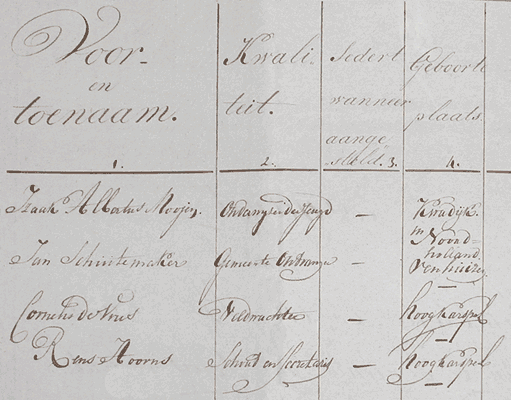 Voor- Kwali- Sedert Geboorte
en
toenaam. teit. wanneer plaats
aange
steld.
1. 2. 3. 4.
Izaak Albertus Moojen, – Kwadijk.
in
Noord-
Jan Schuitemaker Gemeente Ontvanger – holland
Venhuizen
Cornelis de Vries Veldwachter – Hoogkarspel
Rens Hoorns Schout en Secretaris – Hoogkarspel